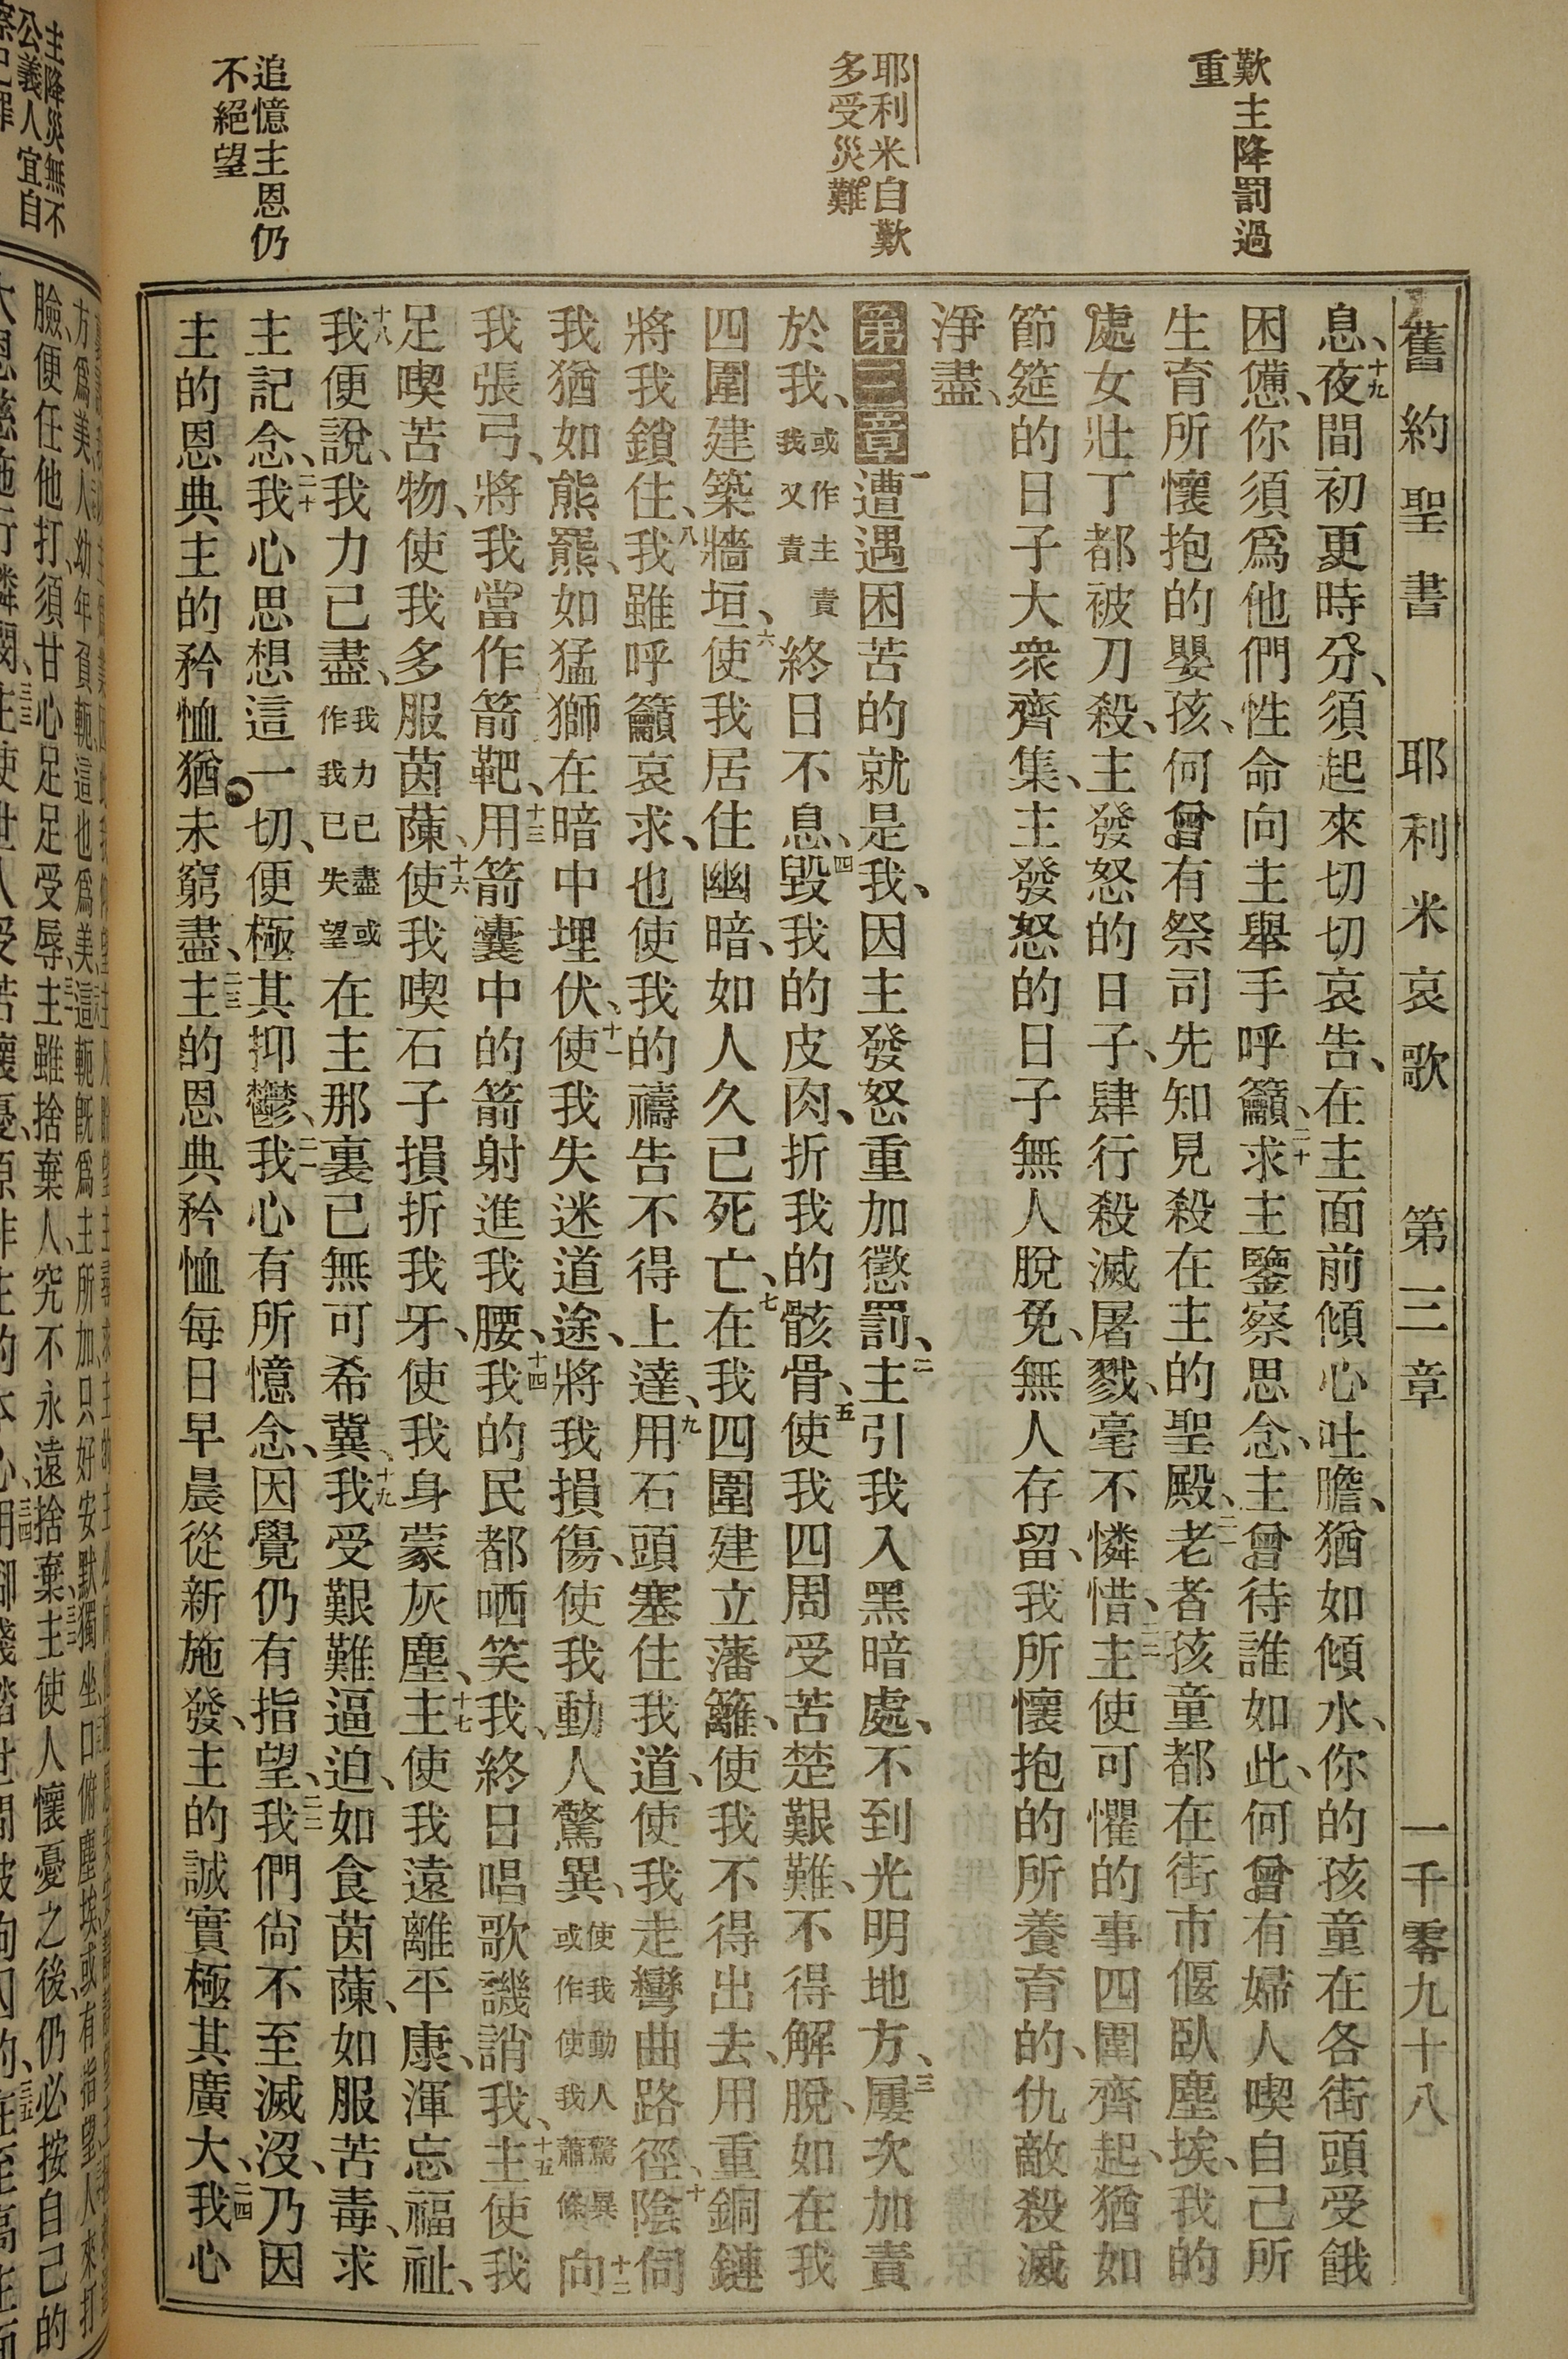 歎主降罰過
重
耶利米自歎
多受災難
追憶主恩仍
不絕望
舊約聖書 耶利米哀歌 第三章 一千零九十八
息、十九夜間初更時分、須起來切切哀告、在主面前傾心吐膽、猶如傾水、你的孩童在各街頭受餓
困憊、你須爲他們性命向主舉手呼籲、二十求主鑒察思念、主曾待誰如此、何曾有婦人喫自己所
生育所懷抱的嬰孩、何曾有祭司先知見殺在主的聖殿、二一老者孩童都在街市偃臥塵埃、我的
處女壯丁都被刀殺、主發怒的日子、肆行殺滅屠戮、毫不憐惜、二二主使可懼的事四圍齊起、猶如
節筵的日子大衆齊集、主發怒的日子無人脫免、無人存留、我所懷抱的所養育的、仇敵殺滅
淨盡、
第三章一遭遇困苦的就是我、因主發怒重加懲罰、二主引我入黑暗處、不到光明地方、三屢次加責
於我、或作主責我又責終日不息、四毀我的皮肉、折我的骸骨、五使我四周受苦楚艱難、不得解脫、如在我
四圍建築牆垣、六使我居住幽暗、如人久已死亡、七在我四圍建立藩籬、使我不得出去、用重銅鏈
將我鎖住、八我雖呼籲哀求、也使我的禱告不得上達、九用石頭塞住我道、使我走彎曲路徑、十陰伺
我猶如熊羆、如猛獅在暗中埋伏、十一使我失迷道途、將我損傷、使我動人驚異、使我動人驚異或作使我蕭條十二向
我張弓、將我當作箭靶、十三用箭囊中的箭射進我腰、十四我的民都哂笑我、終日唱歌譏誚我、十五主使我
足喫苦物、使我多服茵蔯、十六使我喫石子損折我牙、使我身蒙灰塵、十七主使我遠離平康、渾忘福祉、
十八我便說、我力已盡、我力已盡或作我已失望在主那裏已無可希冀、十九我受艱難逼迫、如食茵蔯、如服苦毒、求
主記念、二十我心思想這一切、便極其抑鬱、二一我心有所憶念、因覺仍有指望、二二我們尙不至滅沒、乃因
主的恩典主的矜恤猶未窮盡、二三主的恩典矜恤每日早晨從新施發、主的誠實極其廣大、二四我心
主降災無不
公義人宜自
臉、便任他打、須甘心足足受辱、主雖捨棄人、究不永遠捨棄、主使人懷憂之後、仍必按自己的